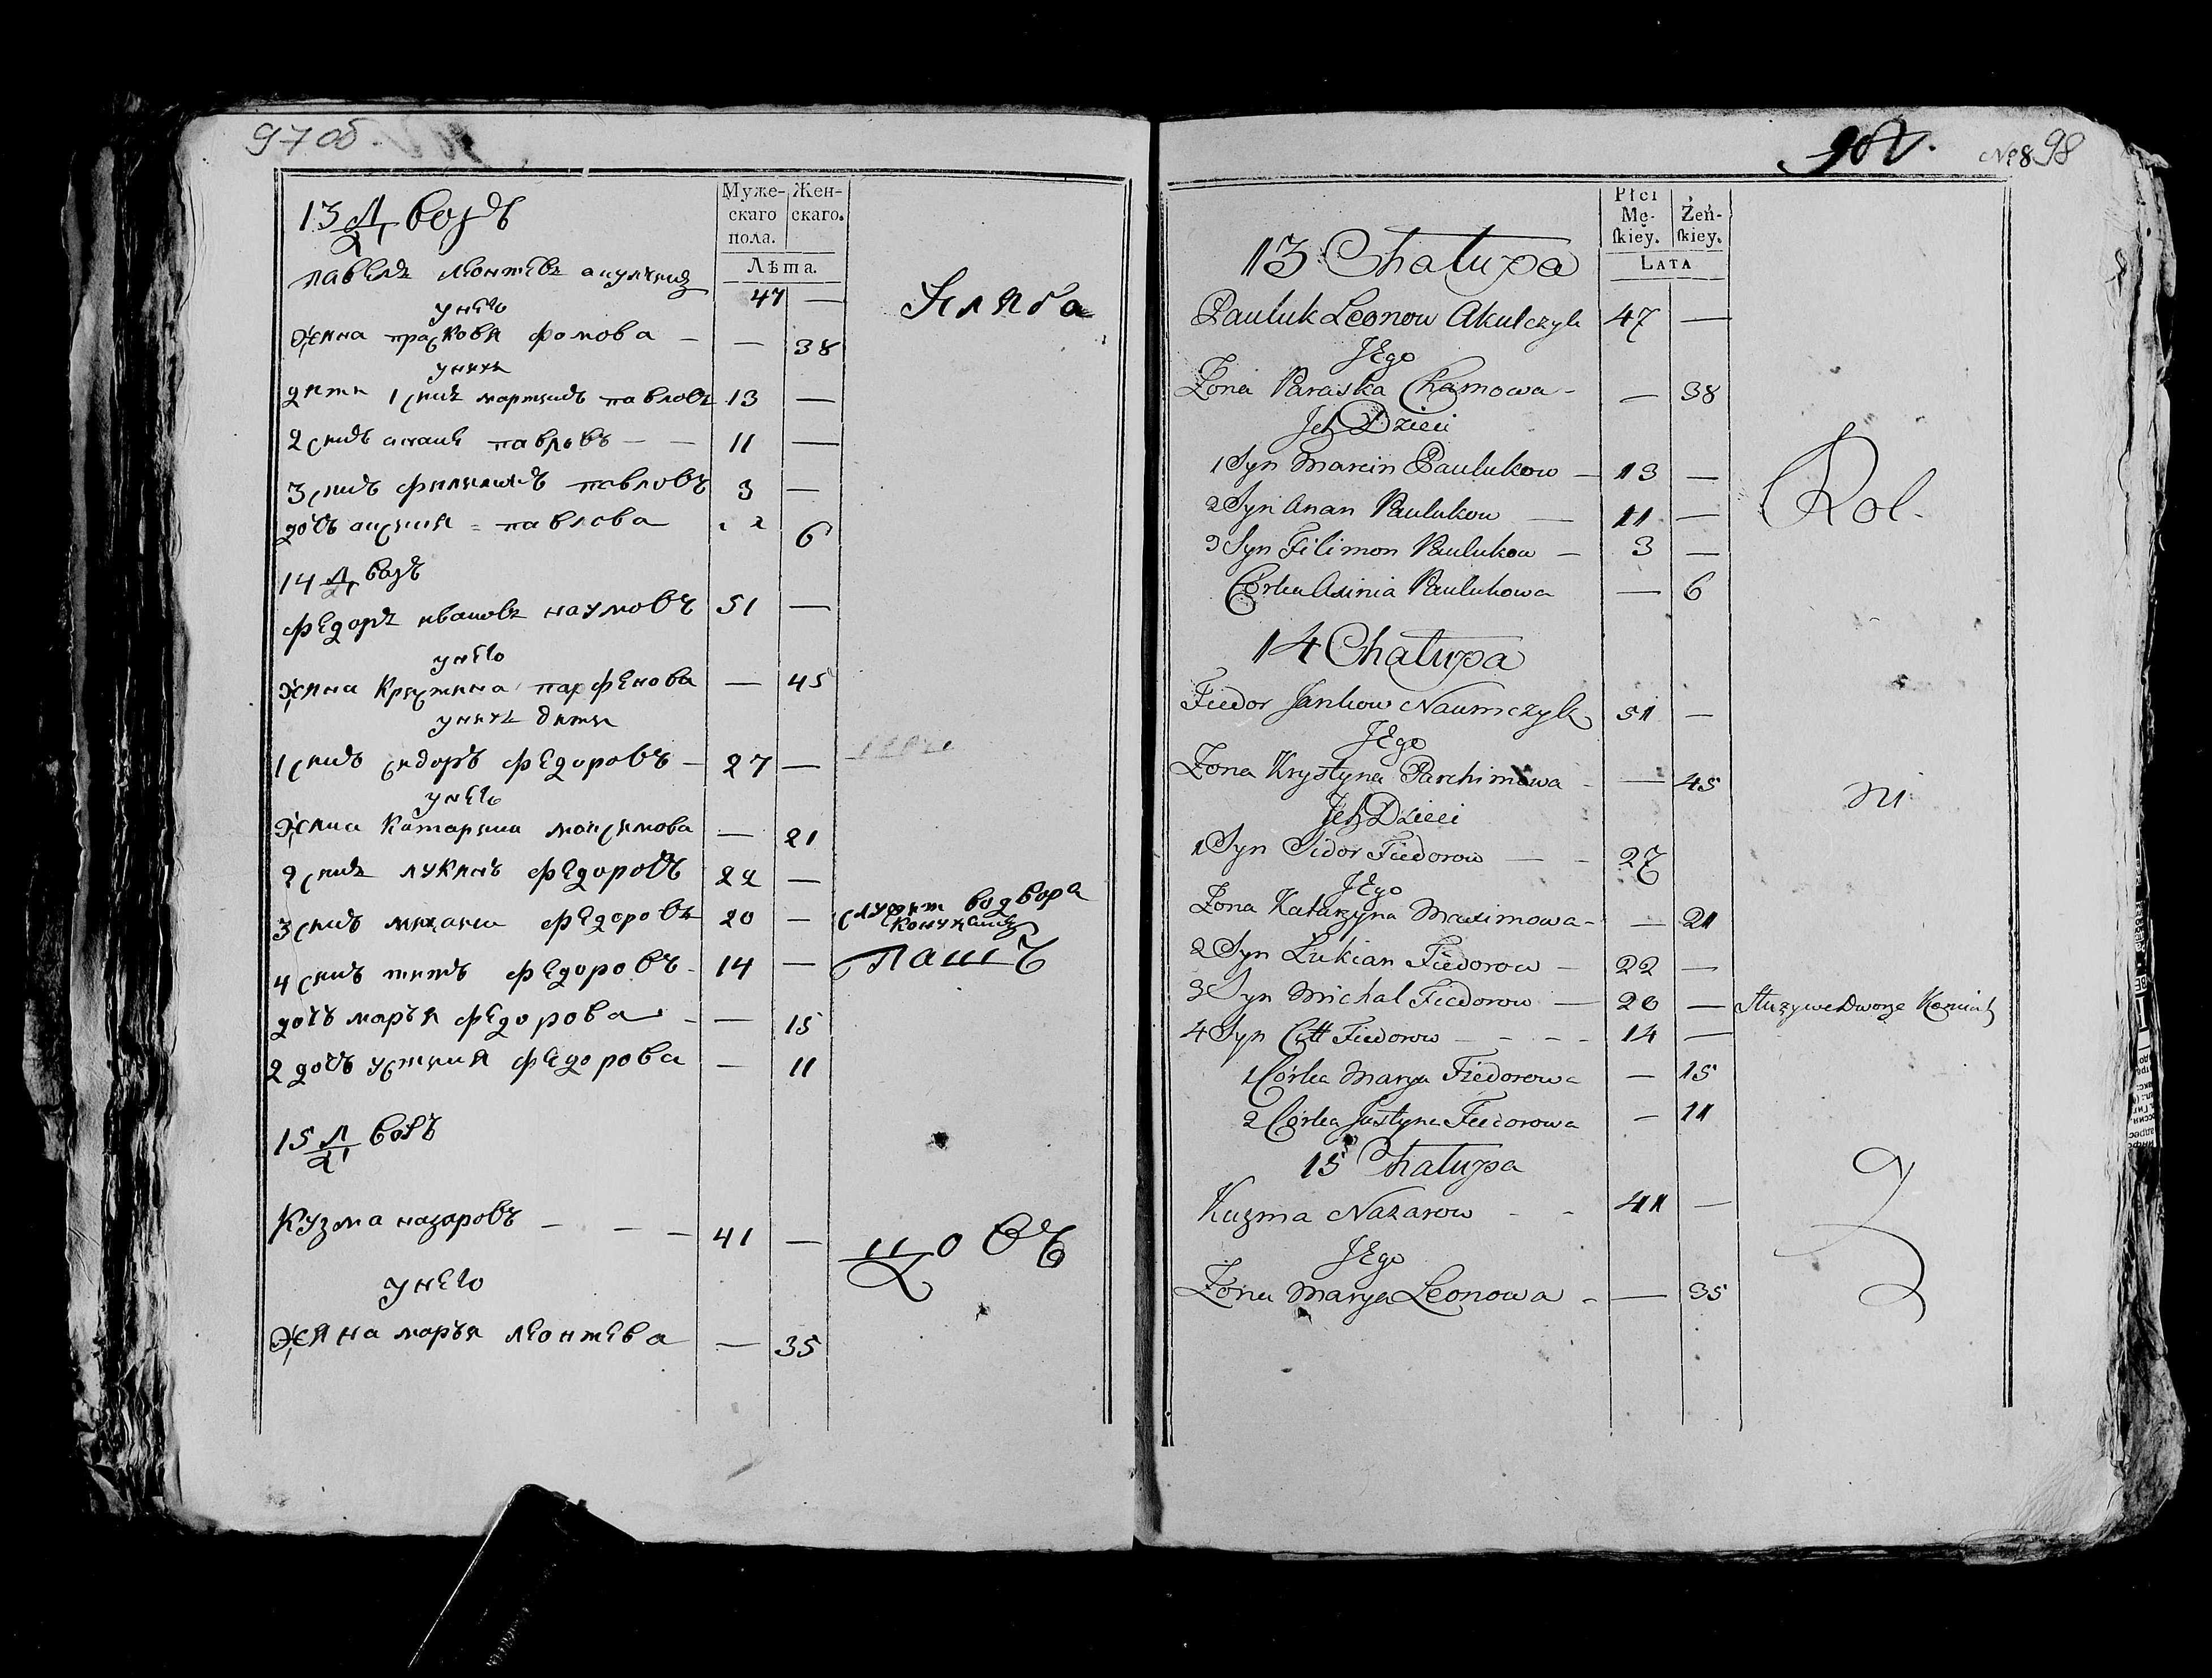 97 об.
13 Дворъ
Муже-
скаго
пола.
Жен-
скаго.
Лѣта.
павелъ леонтевъ акулчикъ 47 —
у него
Жина прасковя фомова — — 38
у нихъ
дити 1 синъ мартинъ павловъ 13 —
2 синъ анани павловъ — — 11 —
3 синъ филимонъ павловъ 3 —
дочъ аксиния = павлова 6
14 Дворъ
федоръ ивановъ наумовъ 51 —
у него
жина Кристина парфенова — 45
у нихъ дити
1 синъ сидоръ федоровъ — 27 —
у него
Жина Катарина максимова — 21
2 синъ лукянъ федоровъ 22 —
3 синъ михаила федоровъ 20 — служит водвора
4 синъ титъ федоровъ 14 —
дочъ маръя федорова — — 15
2 дочъ устиния федорова — 11
15 Дворъ
Кузма назаровъ — — — 41 —
у него
Жина маръя леонтева — 35
Хляба
пашъ
цовъ
902.
№ 8 98
Płci
Mę-
skiey.
Żeń-
skiey.
LATA
13 Chałupa
Pauluk Leonow Akulczyk 47 —
JEgo
Żona Paraska Chamowa — — 38
Jch Dzieci
1 Syn Marcin Paulukow — 13 —
2 Syn Anan Paulukow — 11 —
3 Syn Filimon Paulukow — 3 —
Córka Axinia Paulukowa — 6
14 Chałupa
Fiedor Jankow Naumczyk 51 —
JEgo
Żona Krystyna Parchimowa — — 45
Jch Dzieci
1 Syn Sidor Fiedorow — — 27
JEgo
Żona Katarzyna Maximowa — — 21
2 Syn Lukian Fiedorow — 22 —
3 Syn Michał Fiedorow — 20 — Służy we Dworze
4 Syn Citt Fiedorow — — — — 14 —
1 Córka Marya Fiedorowa — 15
2 Córka Justyna Fiedorowa — 11
15 Chałupa
Kuzma Nazarow — — 41 —
JEgo
Żona Marya Leonowa — — 35
Rol
ni